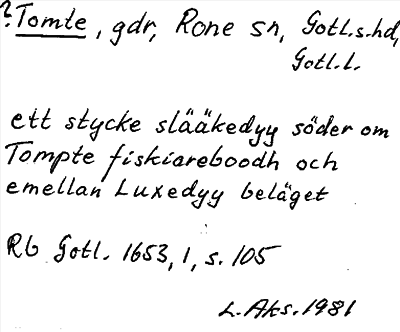 ?Tomte, gdr, Rone sn, Gotl.s.hd,
Gotl.l.
ett stycke slååkedyy söder om
Tompte fiskiareboodh och
emellan Luxedyy beläget
Rb Gotl. 1653, 1, s. 105
L.Aks. 1981